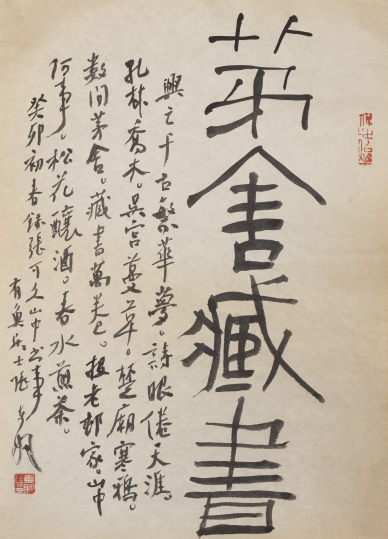 茅舍藏書
興亡千古繁華夢。詩眼倦天涯。
孔林喬木。吳宮蔓草。楚廟寒鴉。
數間茅舍。藏書萬卷。投老邨家。山中
何事。松花釀酒。春水煎茶。
癸卯初春錄張可久山中書事